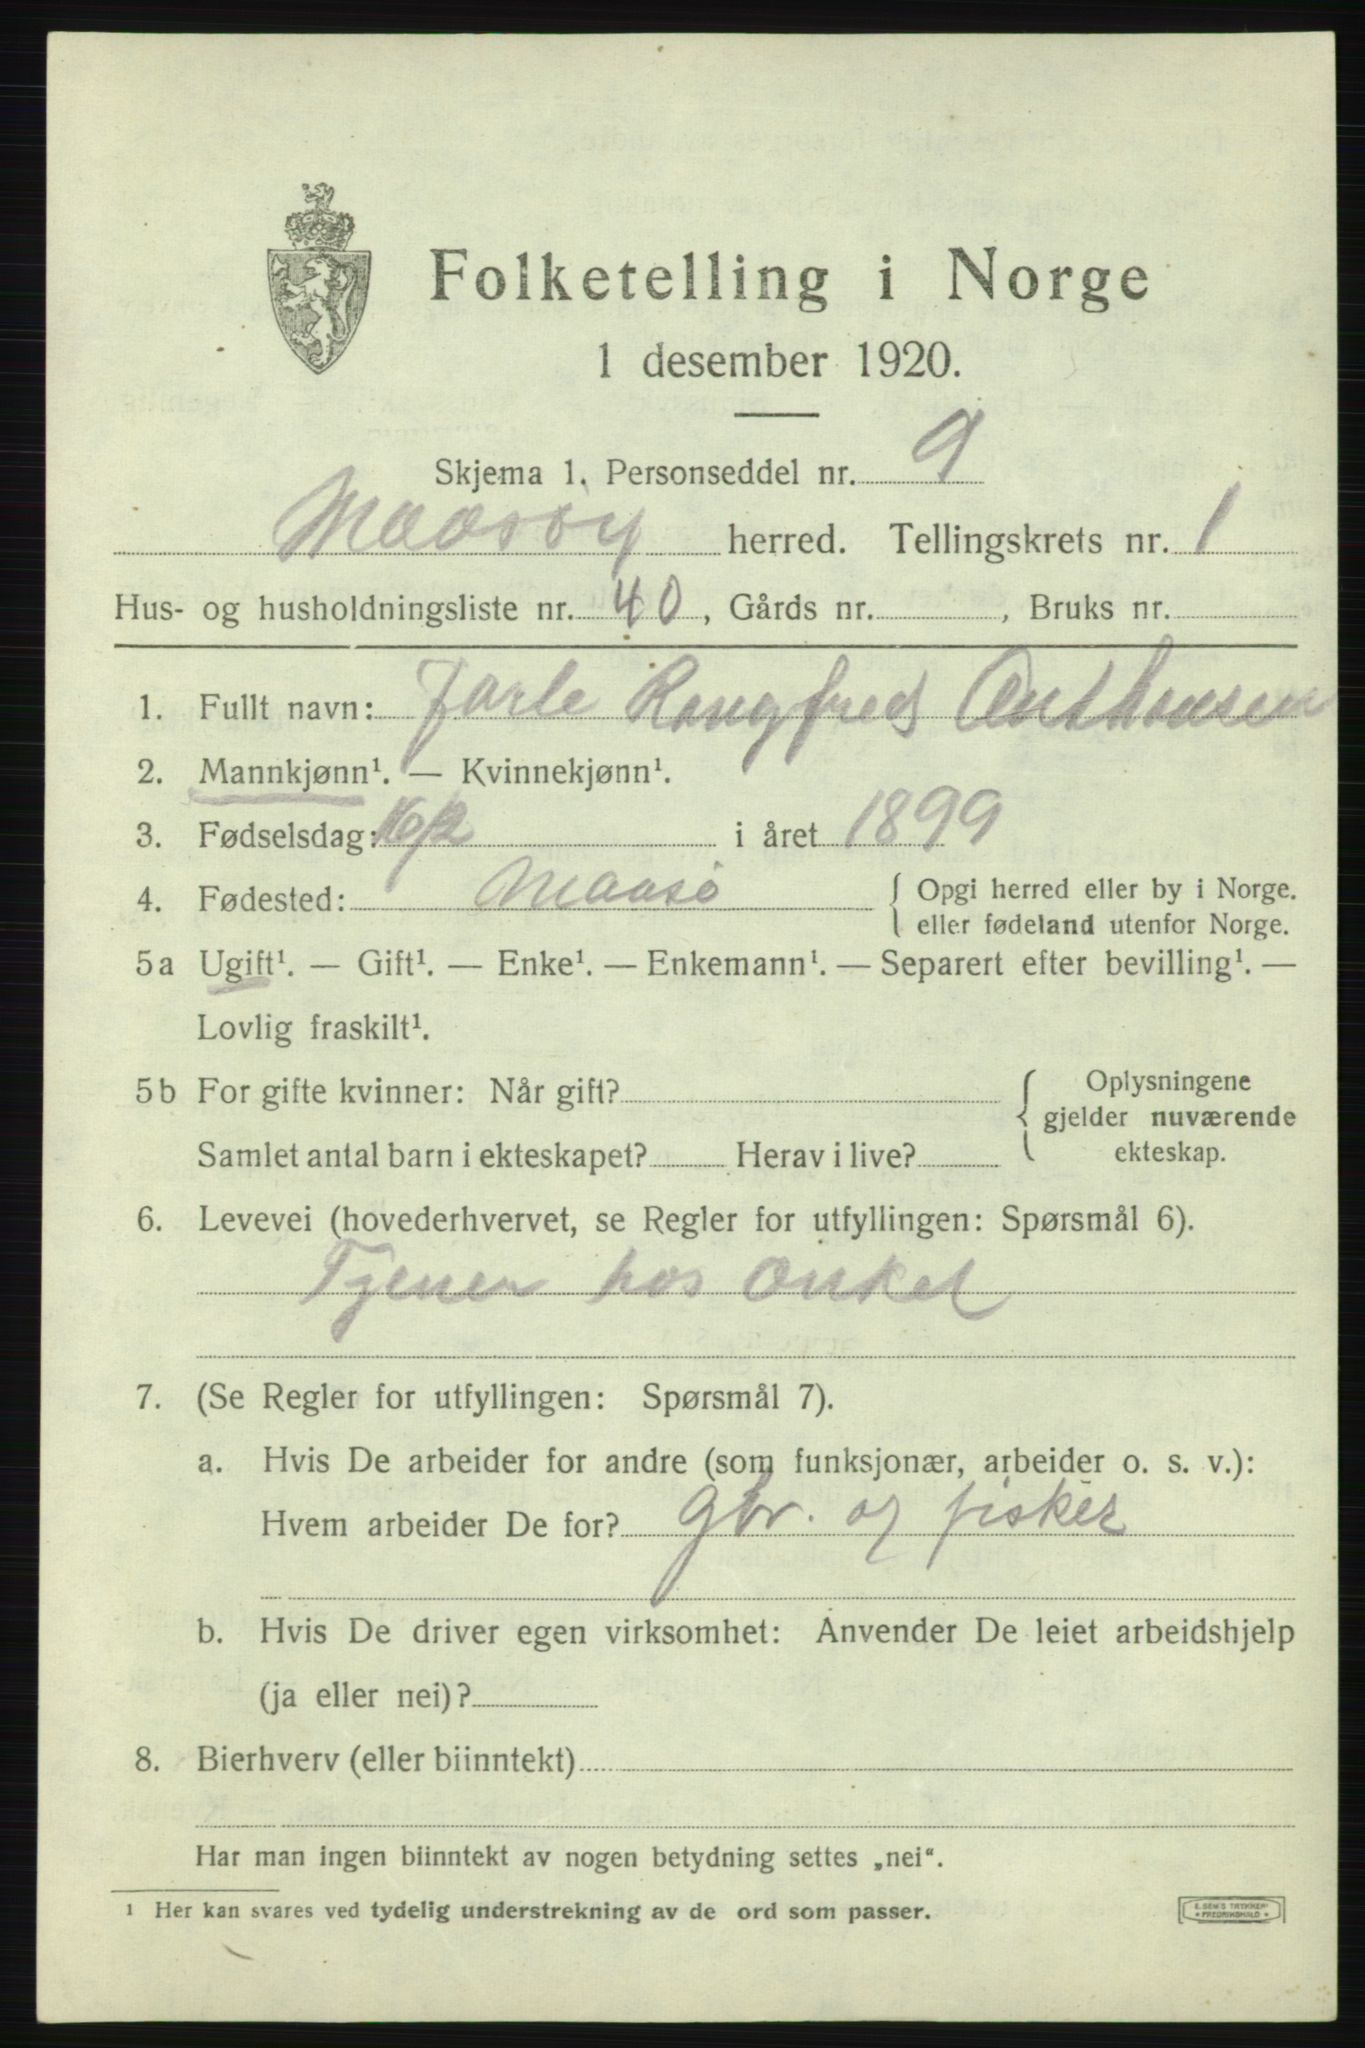 Folketelling i Norge
1 desember 1920.
Skjema 1. Personseddel nr. 9
Maasøy herred. Tellingskrets nr. 1
Hus- og husholdningsliste nr. 40, Gårds nr. , Bruks nr.
1. Fullt navn: Jarle Rangfred Anthonsen
2. Mannkjønn¹. — Kvinnekjønn¹.
3. Fødselsdag: 16/2 i året 1899
4. Fødested: Maasø { Opgi herred eller by i Norge.
eller fødeland utenfor Norge.
5a Ugift¹. — Gift¹. — Enke¹. — Enkemann¹. — Separert efter bevilling¹. —
Lovlig fraskilt¹.
5b For gifte kvinner: Når gift? { Oplysningene
gjelder nuværende
Samlet antal barn i ekteskapet? Herav i live? ekteskap.
6. Levevei (hovederhvervet, se Regler for utfyllingen: Spørsmål 6).
Tjener hos Onkel
7. (Se Regler for utfyllingen: Spørsmål 7).
a. Hvis De arbeider for andre (som funksjonær, arbeider o. s. v.):
Hvem arbeider De for? gbr. og fisker
b. Hvis De driver egen virksomhet: Anvender De leiet arbeidshjelp
(ja eller nei)?
8. Bierhverv (eller biinntekt)
Har man ingen biinntekt av nogen betydning settes „nei“.
¹ Her kan svares ved tydelig understrekning av de ord som passer.
E. SEM'S TRYKKERI
FREDRIKSHALD